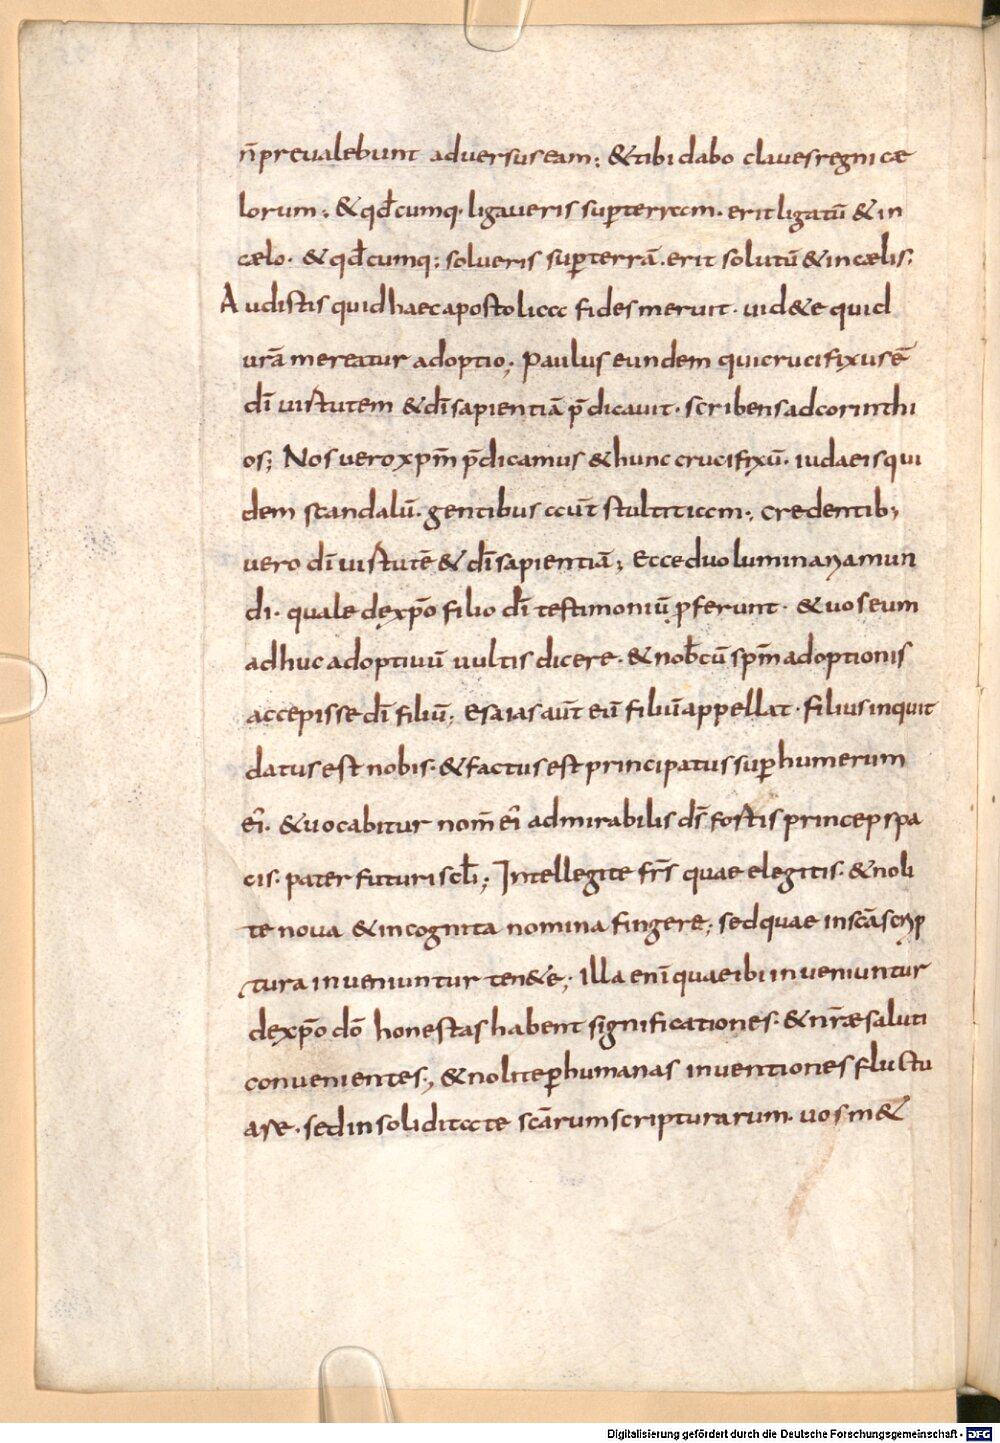 n̄ prevalebunt adversus eam; & tibi dabo claves regni cae
lorum; & qđcumq· ligaveris sup̱ terram· erit ligatū & in
cælo· & qđcumq; solveris sup̱ terrā· erit solutū & in cælis;
Audistis quid haec apostolica fides meruit· uid&e quid
urā mereatur adoptio; Paulus eundem qui crucifixus ē
dī uirtutem & dī sapientiā p̄dicauit· scribens ad corinthi
os; Nos uero xp̄m p̄dicamus & hunc crucifixū· iudaeis qui
dem scandalū· gentibus aūt stultitiam; credentib;
uero dī uirtutē & dī sapientiā; Ecce duo luminaria mun
di· quale de xp̄o filio dī testimoniū p̱ferunt· & uos eum
adhuc adoptiuū uultis dicere· & nob̄ cū sp̄m adoptionis
accepisse dī filiū; Esaias aūt eū filiū appellat· filius inquit
datus est nobis· & factus est principatus sup̱ humerum
eī· & uocabitur nom̄ eī admirabilis ds̄ fortis princeps pa
cis· pater futuri scl̄i; Intellegite fr̄s quae elegitis· & noli
te nova & incognita nomina fingere; sed quae in scā scrip
tura inueniuntur ten&e; illa enī quae ibi inueniuntur
de xp̄o dō honestas habent significationes· & nr̄æ saluti
convenientes; & nolite p̱ humanas inventiones fluctu
are· sed in soliditate scārum scripturarum· uosm&
Digitalisierung gefördert durch die Deutsche Forschungsgemeinschaft - DFG